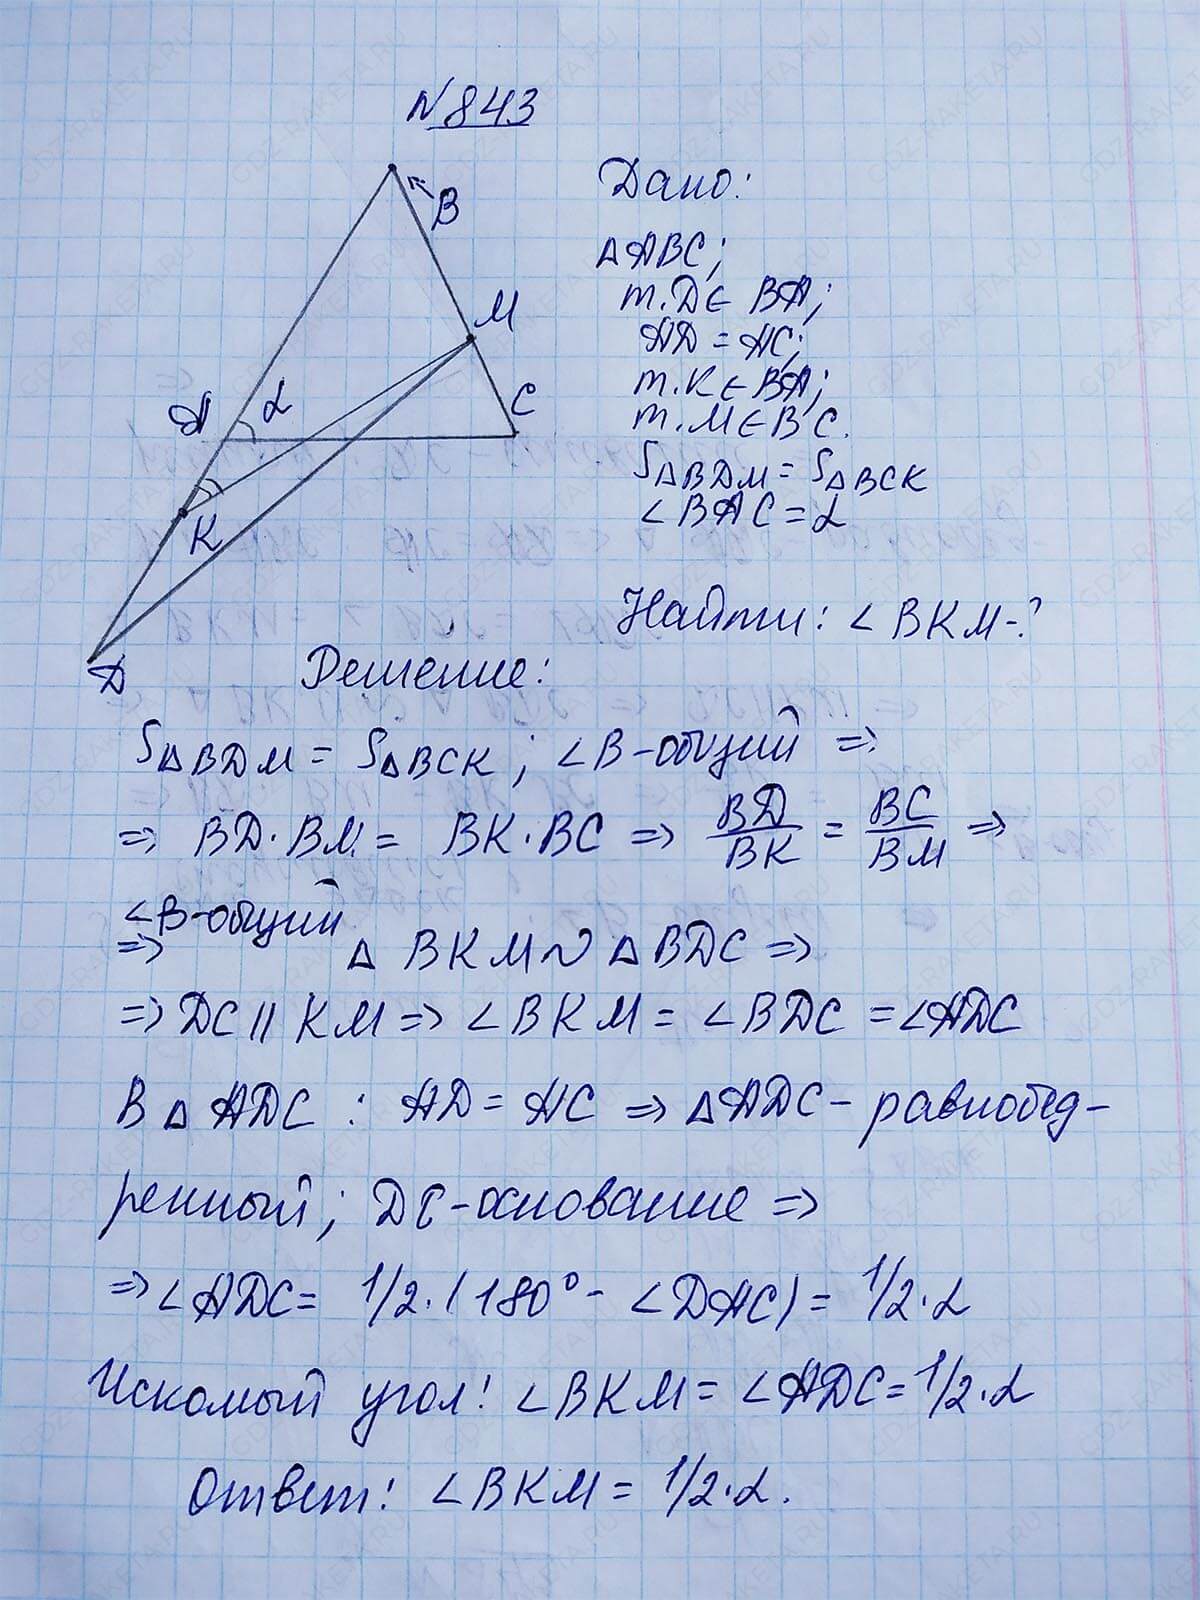 N843
B
M
A
α
C
K
D
Дано:
△ABC;
т.D∈ BA;
AD = AC;
т.K∈ BA;
т.M∈BC.
S△BDM = S△BCK
∠BAC = α
Найти: ∠BKM-?
Решение:
S△BDM = S△BCK; ∠B-общий =>
=> BD·BM = BK·BC => BD/BK = BC/BM =>
∠B-общий
=> △BKM ~ △BDC =>
=> DC || KM => ∠BKM = ∠BDC = ∠ADC
В △ADC : AD = AC => △ADC - равнобед-
ренный; DC-основание =>
=> ∠ADC = 1/2·(180° - ∠DAC) = 1/2·α
Искомый угол: ∠BKM = ∠ADC = 1/2·α
Ответ: ∠BKM = 1/2·α.
GDZ-RAKETA.RU